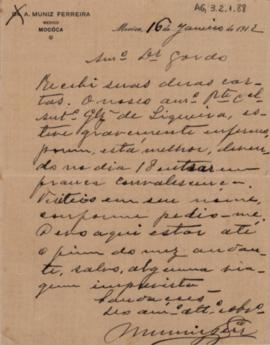 AG.3.2.1.88
DR. A. MUNIZ FERREIRA
MEDICO
MOCÓCA
Mococa, 16 de Janeiro de 1912
Am.º Dr Gordo
Recebi suas duas car-
tas. O nosso am.º
de Siqueira, es-
teve gravemente enfermo,
porem, está melhor, deven-
do no dia 18 entrar em
franca convalescença.
Visitei-o em seu nome,
conforme pedio-me.
Devo aqui estar até
o fim do mez andan-
te, salvo, alguma via-
gem imprevista.
Saudações
Do am.º att.º